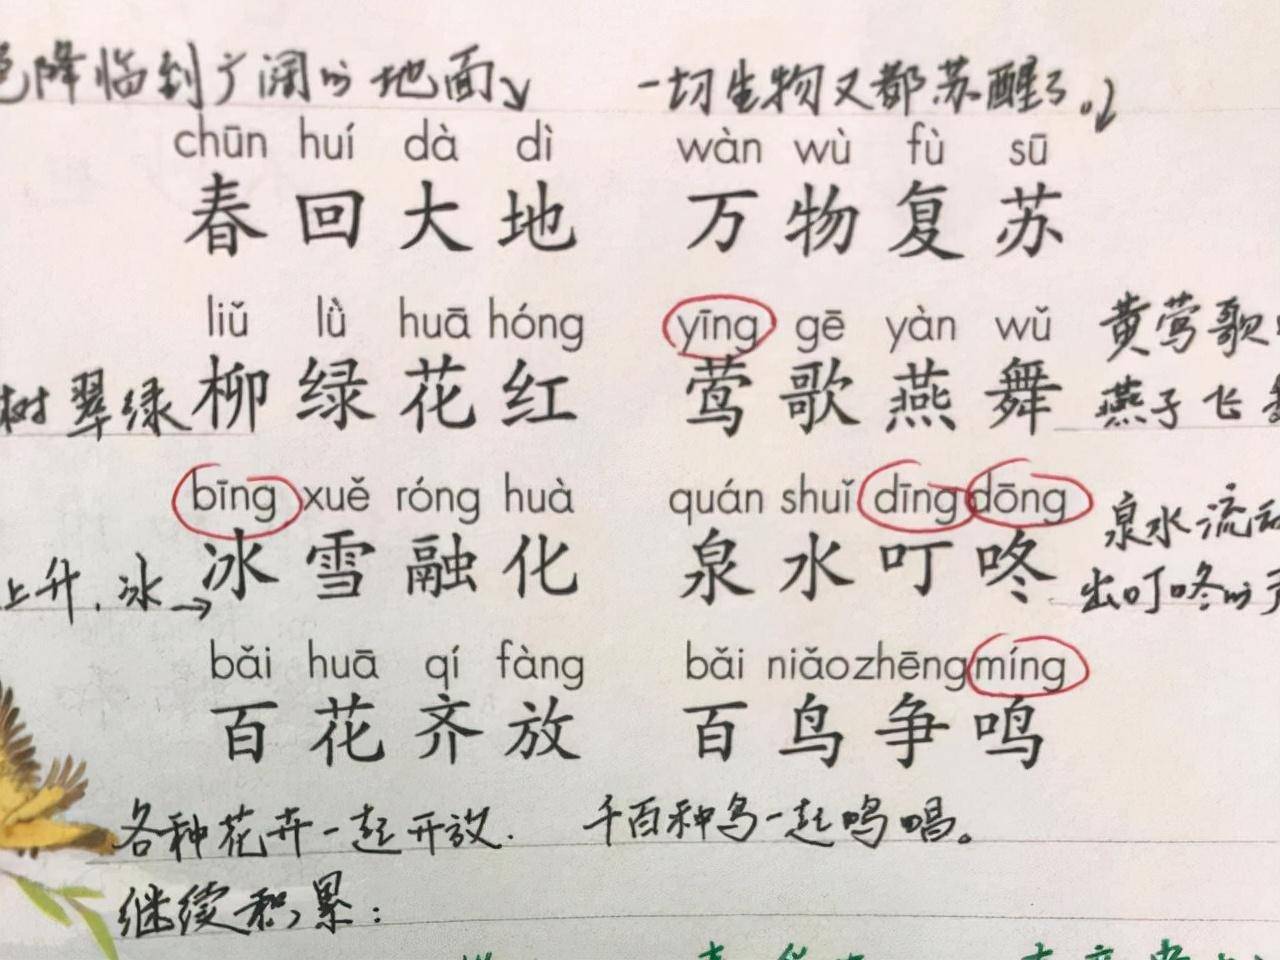 降临到广阔的地面 一切生物又都苏醒了。
chūn huí dà dì wàn wù fù sū
春回大地 万物复苏
liǔ lǜ huā hóng yīng gē yàn wǔ
黄莺歌
树翠绿 柳绿花红 莺歌燕舞
燕子飞
bīng xuě róng huà quán shuǐ dīng dōng
泉水流
上升,冰 冰雪融化 泉水叮咚
出叮咚的
bǎi huā qí fàng bǎi niǎo zhēng míng
百花齐放 百鸟争鸣
各种花卉一起开放. 千百种鸟一起鸣唱。
继续积累: